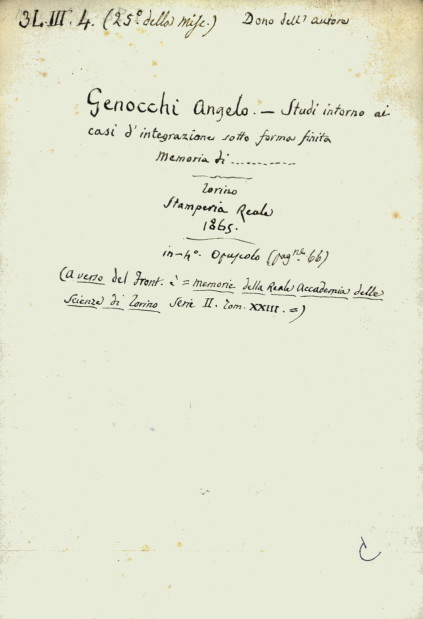 3L. III. 4. (25º. della Misc.) Dono dell'autore
Genocchi Angelo. — Studi intorno ai
casi d'integrazione sotto forma finita
Memoria di ..........
Torino
Stamperia Reale
1865.
in-4º. Opuscolo (pag.ne 66)
(a verso del front. è = Memorie della Reale Accademia delle
Scienze di Torino Serie II. Tom. XXIII. =)